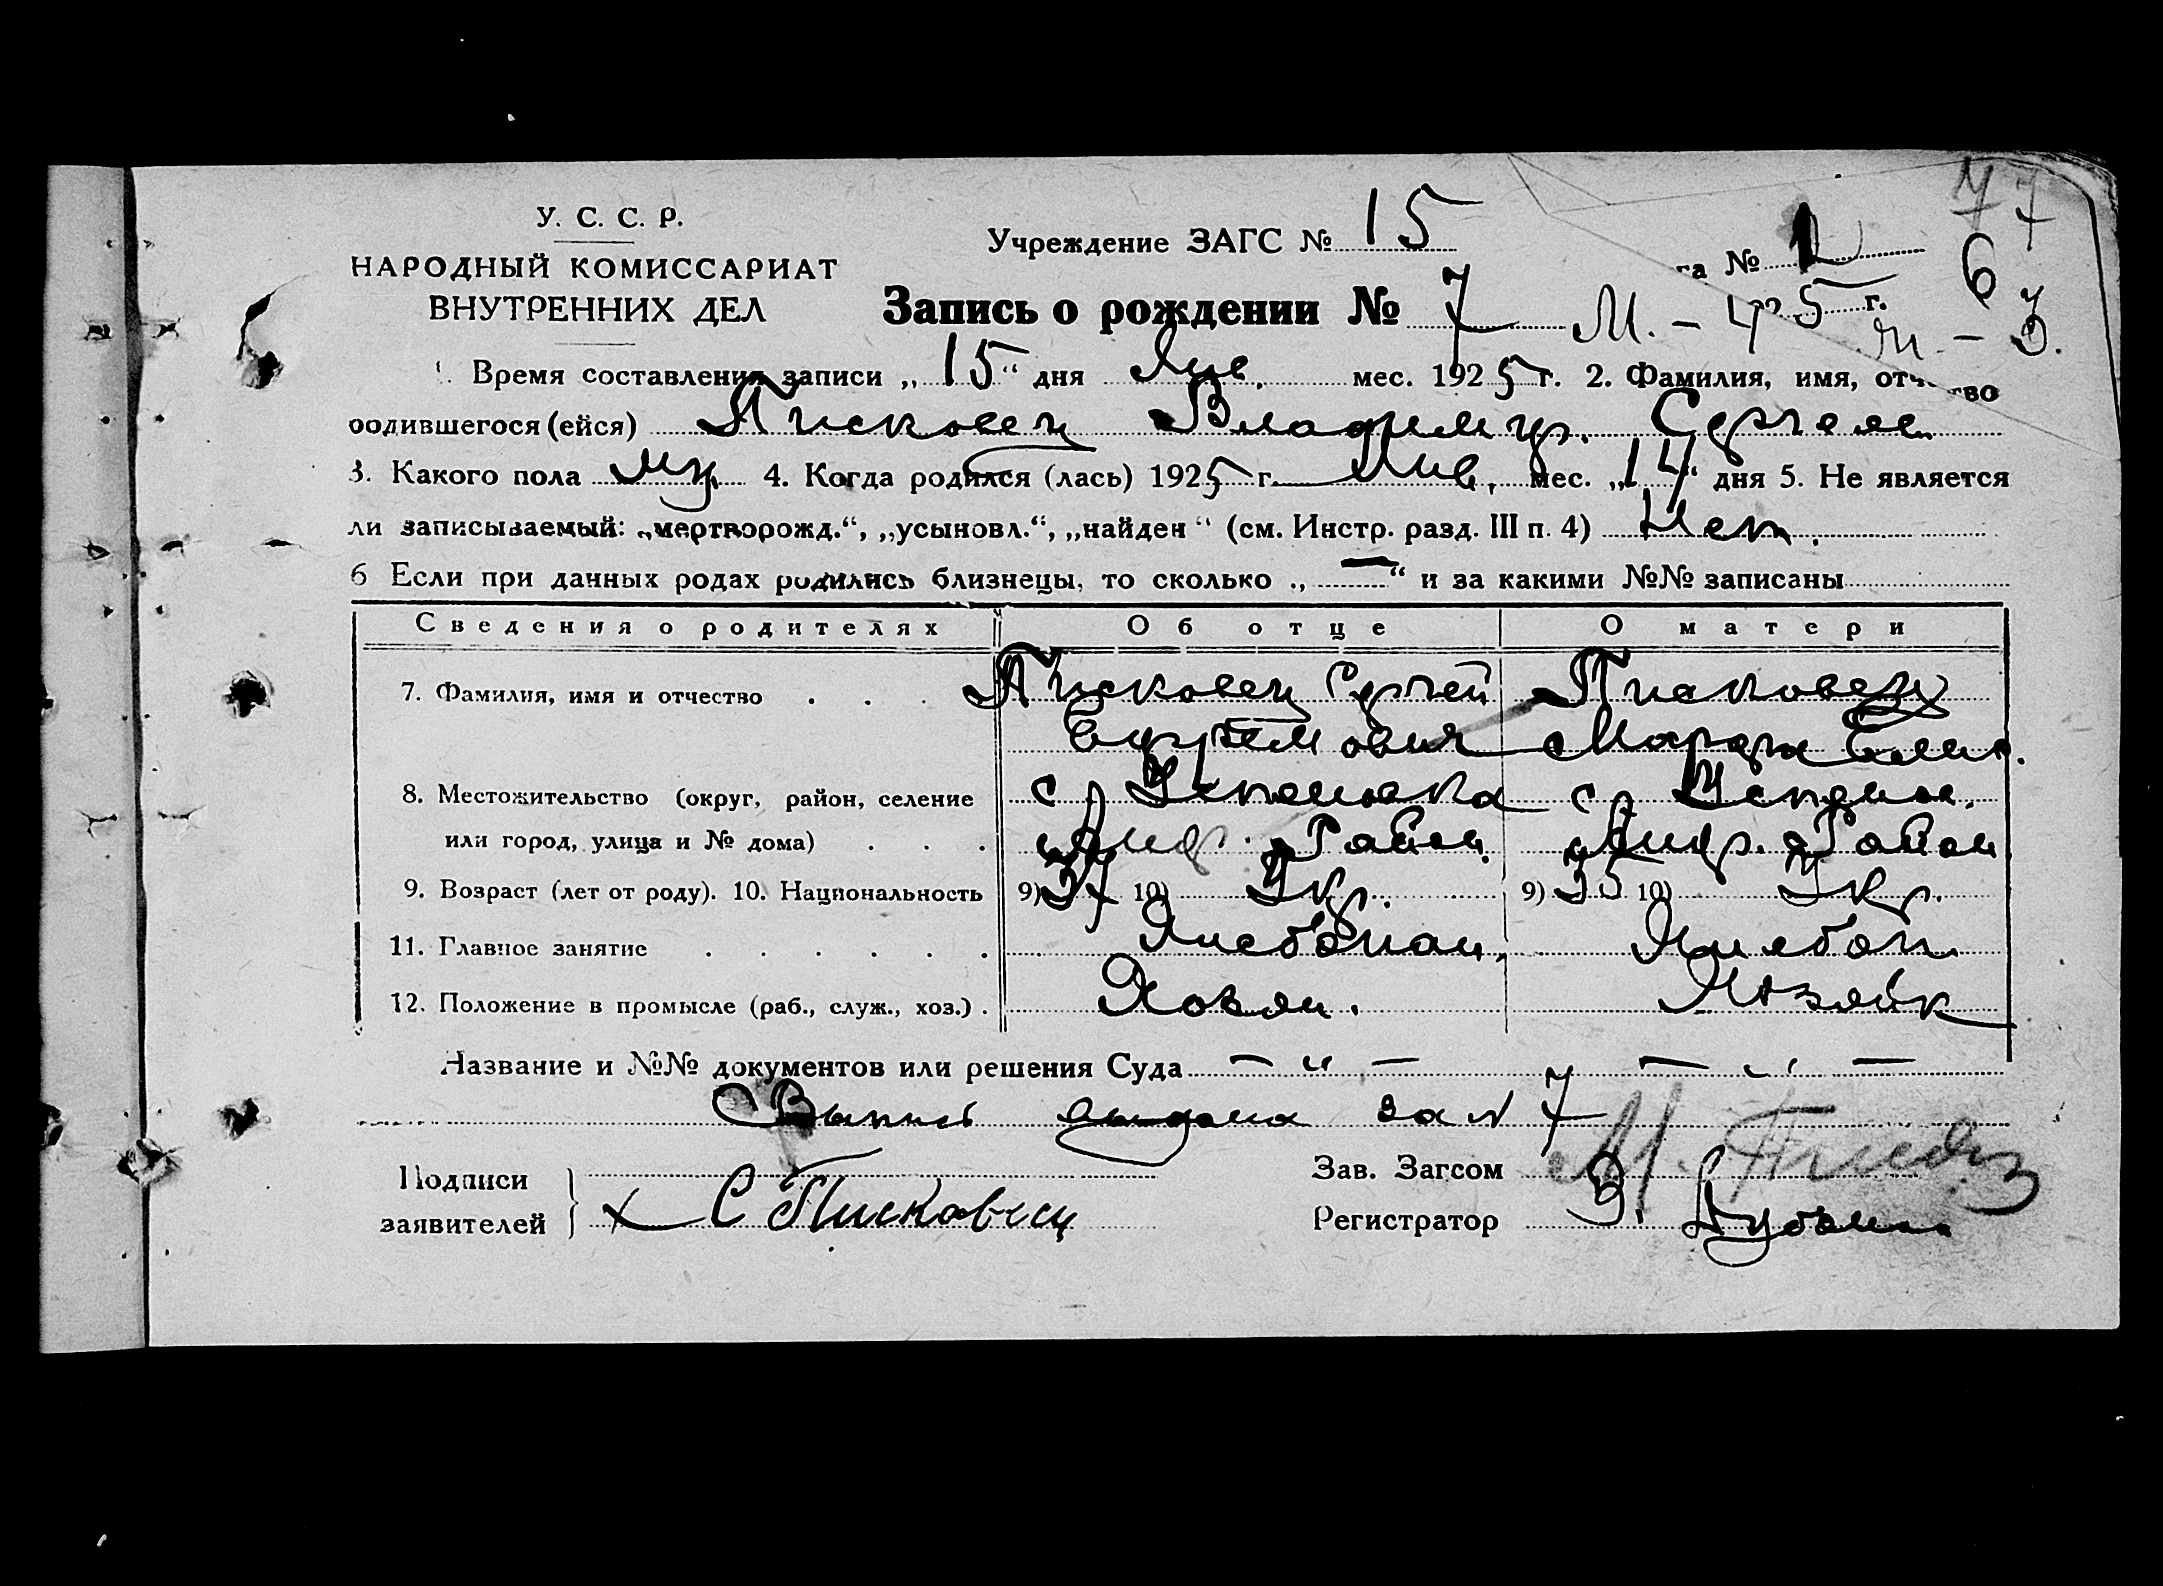 У. С. С. Р.
НАРОДНЫЙ КОМИССАРИАТ
ВНУТРЕННИХ ДЕЛ
77
Учреждение ЗАГС № 15
га №
6
Запись о рождении № 7 М. – 4 5 г.
– 3.
Время составления записи „15“ дня Янв. мес. 1925 г. 2. Фамилия, имя, отчество
родившегося (ейся)Писковец Владимир. Сергеев.
3. Какого пола муж. 4. Когда родился (лась) 1925 г. Янв. мес. „14“ дня 5. Не является
ли записываемый: „мертворожд.“, „усыновл.“, „найден“ (см. Инстр. разд. III п. 4) Нет.
6 Если при данных родах родились близнецы, то сколько „—“ и за какими №№ записаны
Сведения о родителях Об отце О матери
7. Фамилия, имя и отчество . . . Писковец Сергей Писковец
Марфа
8. Местожительство (округ, район, селение с Успеновка с Успенов.
или город, улица и № дома) . . . Район Район
9. Возраст (лет от роду). 10. Национальность 9) 37 10) Укр. 9) 35 10) Укр.
11. Главное занятие . . . . . . Хлебопаш. Хлебоп.
12. Положение в промысле (раб., служ., хоз.) . Хозяин. Хозяйк
Название и №№ документов или решения Суда — „ — — „ —
Выпись выдана за № 7
Подписи
заявителей
х С Писковец
Зав. Загсом М.
Регистратор